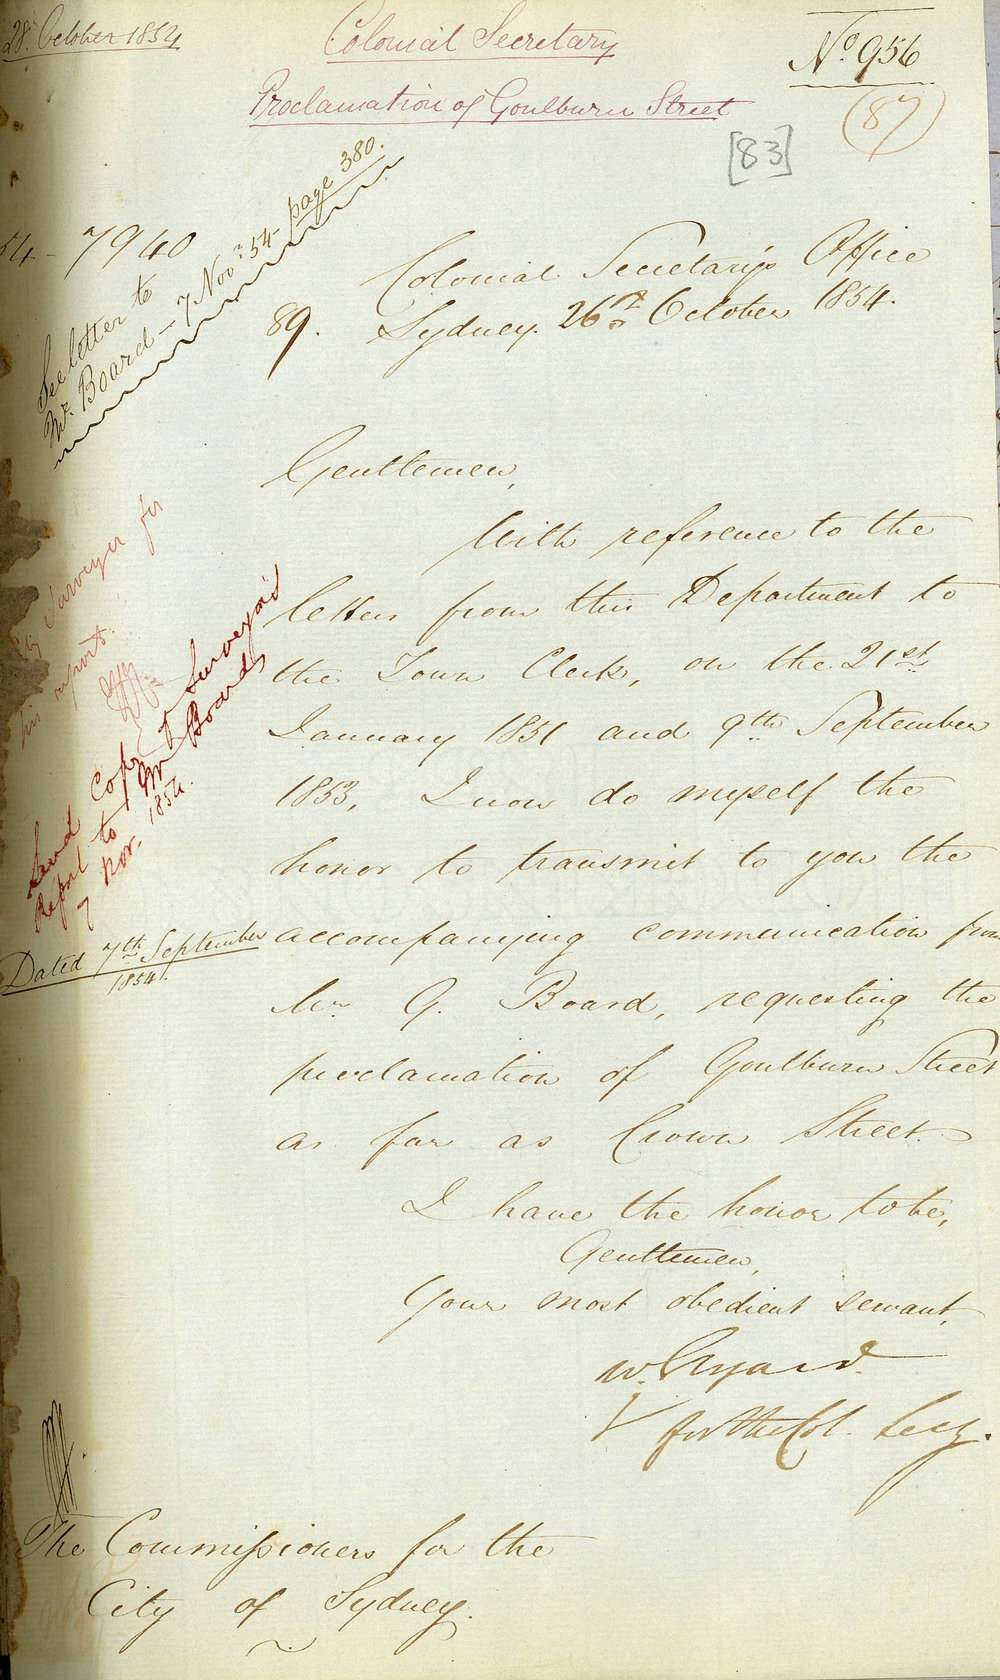 28. October 1854
Colonial Secretary
No. 956
Proclamation of Goulburn Street
(87)
[83]
54-7940
See letter to
Mr. Board - 7 Novr. 54 - page 380.
Colonial Secretary's Office
89. Sydney. 26th October 1854.
Gentlemen,
With reference to the
letters from this Department to
the Town Clerk, on the 21st
January 1851 and 9th September
1853, I now do myself the
honor to transmit to you the
accompanying communication from
Mr G. Board, requesting the
proclamation of Goulburn Street
as far as Crown Street.
Surveyor for
his report.
Send Copy of Surveyor's
Report to Mr Board,
7 Nov. 1854.
Dated 7th September
1854.
I have the honor to be,
Gentlemen,
Your most obedient servant,
W. Elyard
for the Col. Secy.
The Commissioners for the
City of Sydney.